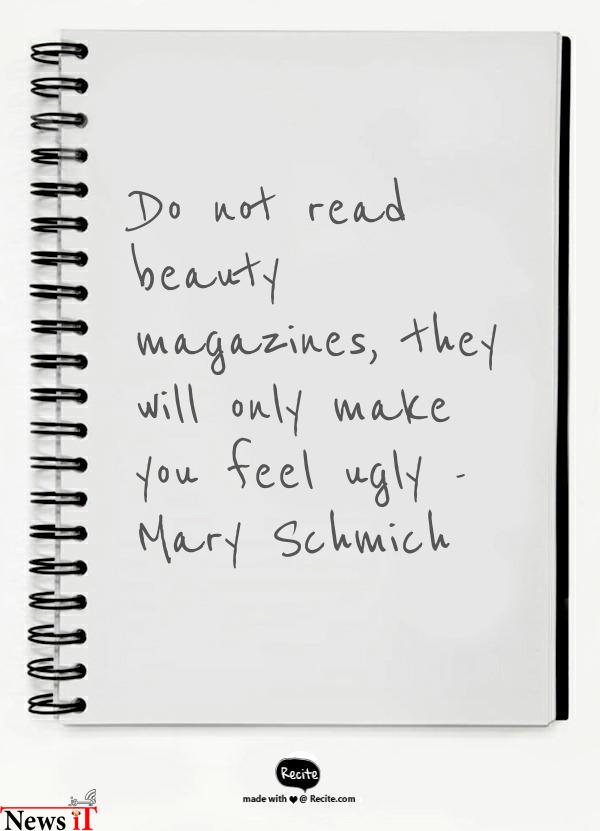 Do not read
beauty
magazines, they
will only make
you feel ugly -
Mary Schmich
Recite
made with ❤ @ Recite.com
News iT